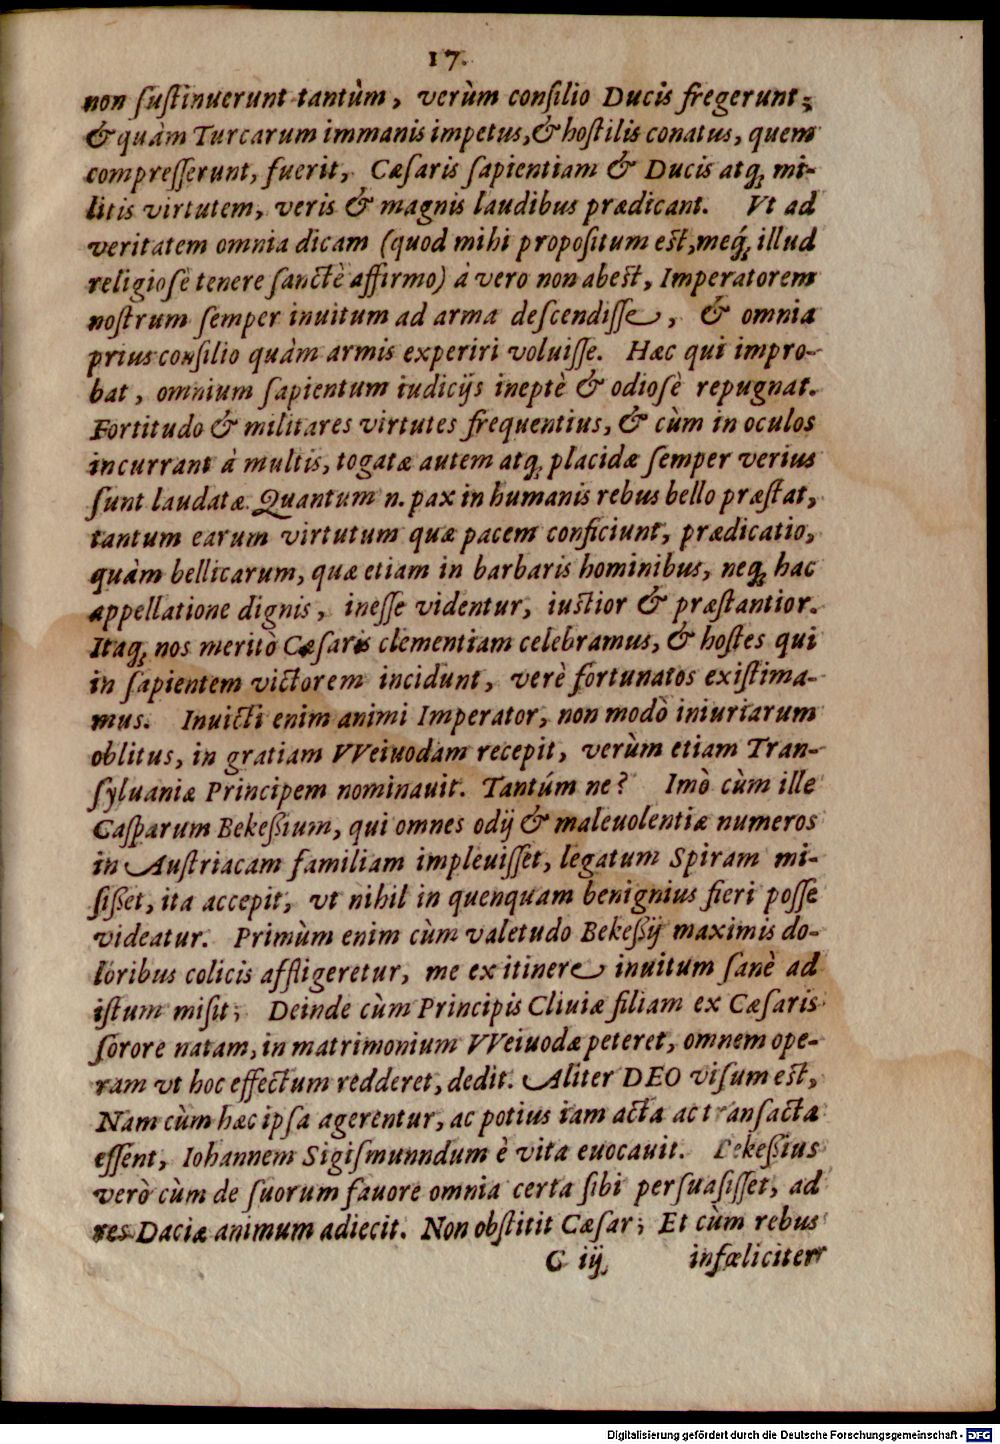 17.
non ſuſtinuerunt tantùm, verùm conſilio Ducis fregerunt;
& quàm Turcarum immanis impetus, & hoſtilis conatus, quem
compreſſerunt, fuerit, Cæſaris ſapientiam & Ducis atq; mi-
litis virtutem, veris & magnis laudibus prædicant. Vt ad
veritatem omnia dicam (quod mihi propoſitum eſt, meq́; illud
religioſè tenere ſanctè affirmo) à vero non abeſt, Imperatorem
noſtrum ſemper inuitum ad arma deſcendiſſe, & omnia
prius conſilio quàm armis experiri voluiſſe. Hæc qui impro-
bat, omnium ſapientum iudicijs ineptè & odioſè repugnat.
Fortitudo & militares virtutes frequentius, & cùm in oculos
incurrant à multis, togatæ autem atq; placidæ ſemper verius
ſunt laudatæ. Quantum n. pax in humanis rebus bello præſtat,
tantum earum virtutum quæ pacem conficiunt, prædicatio,
quàm bellicarum, quæ etiam in barbaris hominibus, neq; hac
appellatione dignis, ineſſe videntur, iuſtior & præſtantior.
Itaq; nos meritò Cæſaris clementiam celebramus, & hoſtes qui
in ſapientem victorem incidunt, verè fortunatos exiſtima-
mus. Inuicti enim animi Imperator, non modò iniuriarum
oblitus, in gratiam VVeiuodam recepit, verùm etiam Tran-
ſyluaniæ Principem nominauit. Tantúm ne? Imò cùm ille
Caſparum Bekeßium, qui omnes odij & maleuolentiæ numeros
in Auſtriacam familiam impleuiſſet, legatum Spiram mi-
ſißet, ita accepit, vt nihil in quenquam benignius fieri poſſe
videatur. Primùm enim cùm valetudo Bekeßij maximis do-
loribus colicis affligeretur, me ex itinere inuitum ſanè ad
iſtum miſit; Deinde cùm Principis Cliuiæ filiam ex Cæſaris
ſorore natam, in matrimonium VVeiuodæ peteret, omnem ope-
ram vt hoc effectum redderet, dedit. Aliter DEO viſum eſt,
Nam cùm hæc ipſa agerentur, ac potius iam acta ac transacta
eſſent, Iohannem Sigiſmunndum è vita euocauit. Bekeßius
verò cùm de ſuorum fauore omnia certa ſibi perſuaſiſſet, ad
res Daciæ animum adiecit. Non obſtitit Cæſar; Et cùm rebus
C iij infœliciter
Digitalisierung gefördert durch die Deutsche Forschungsgemeinschaft - DFG